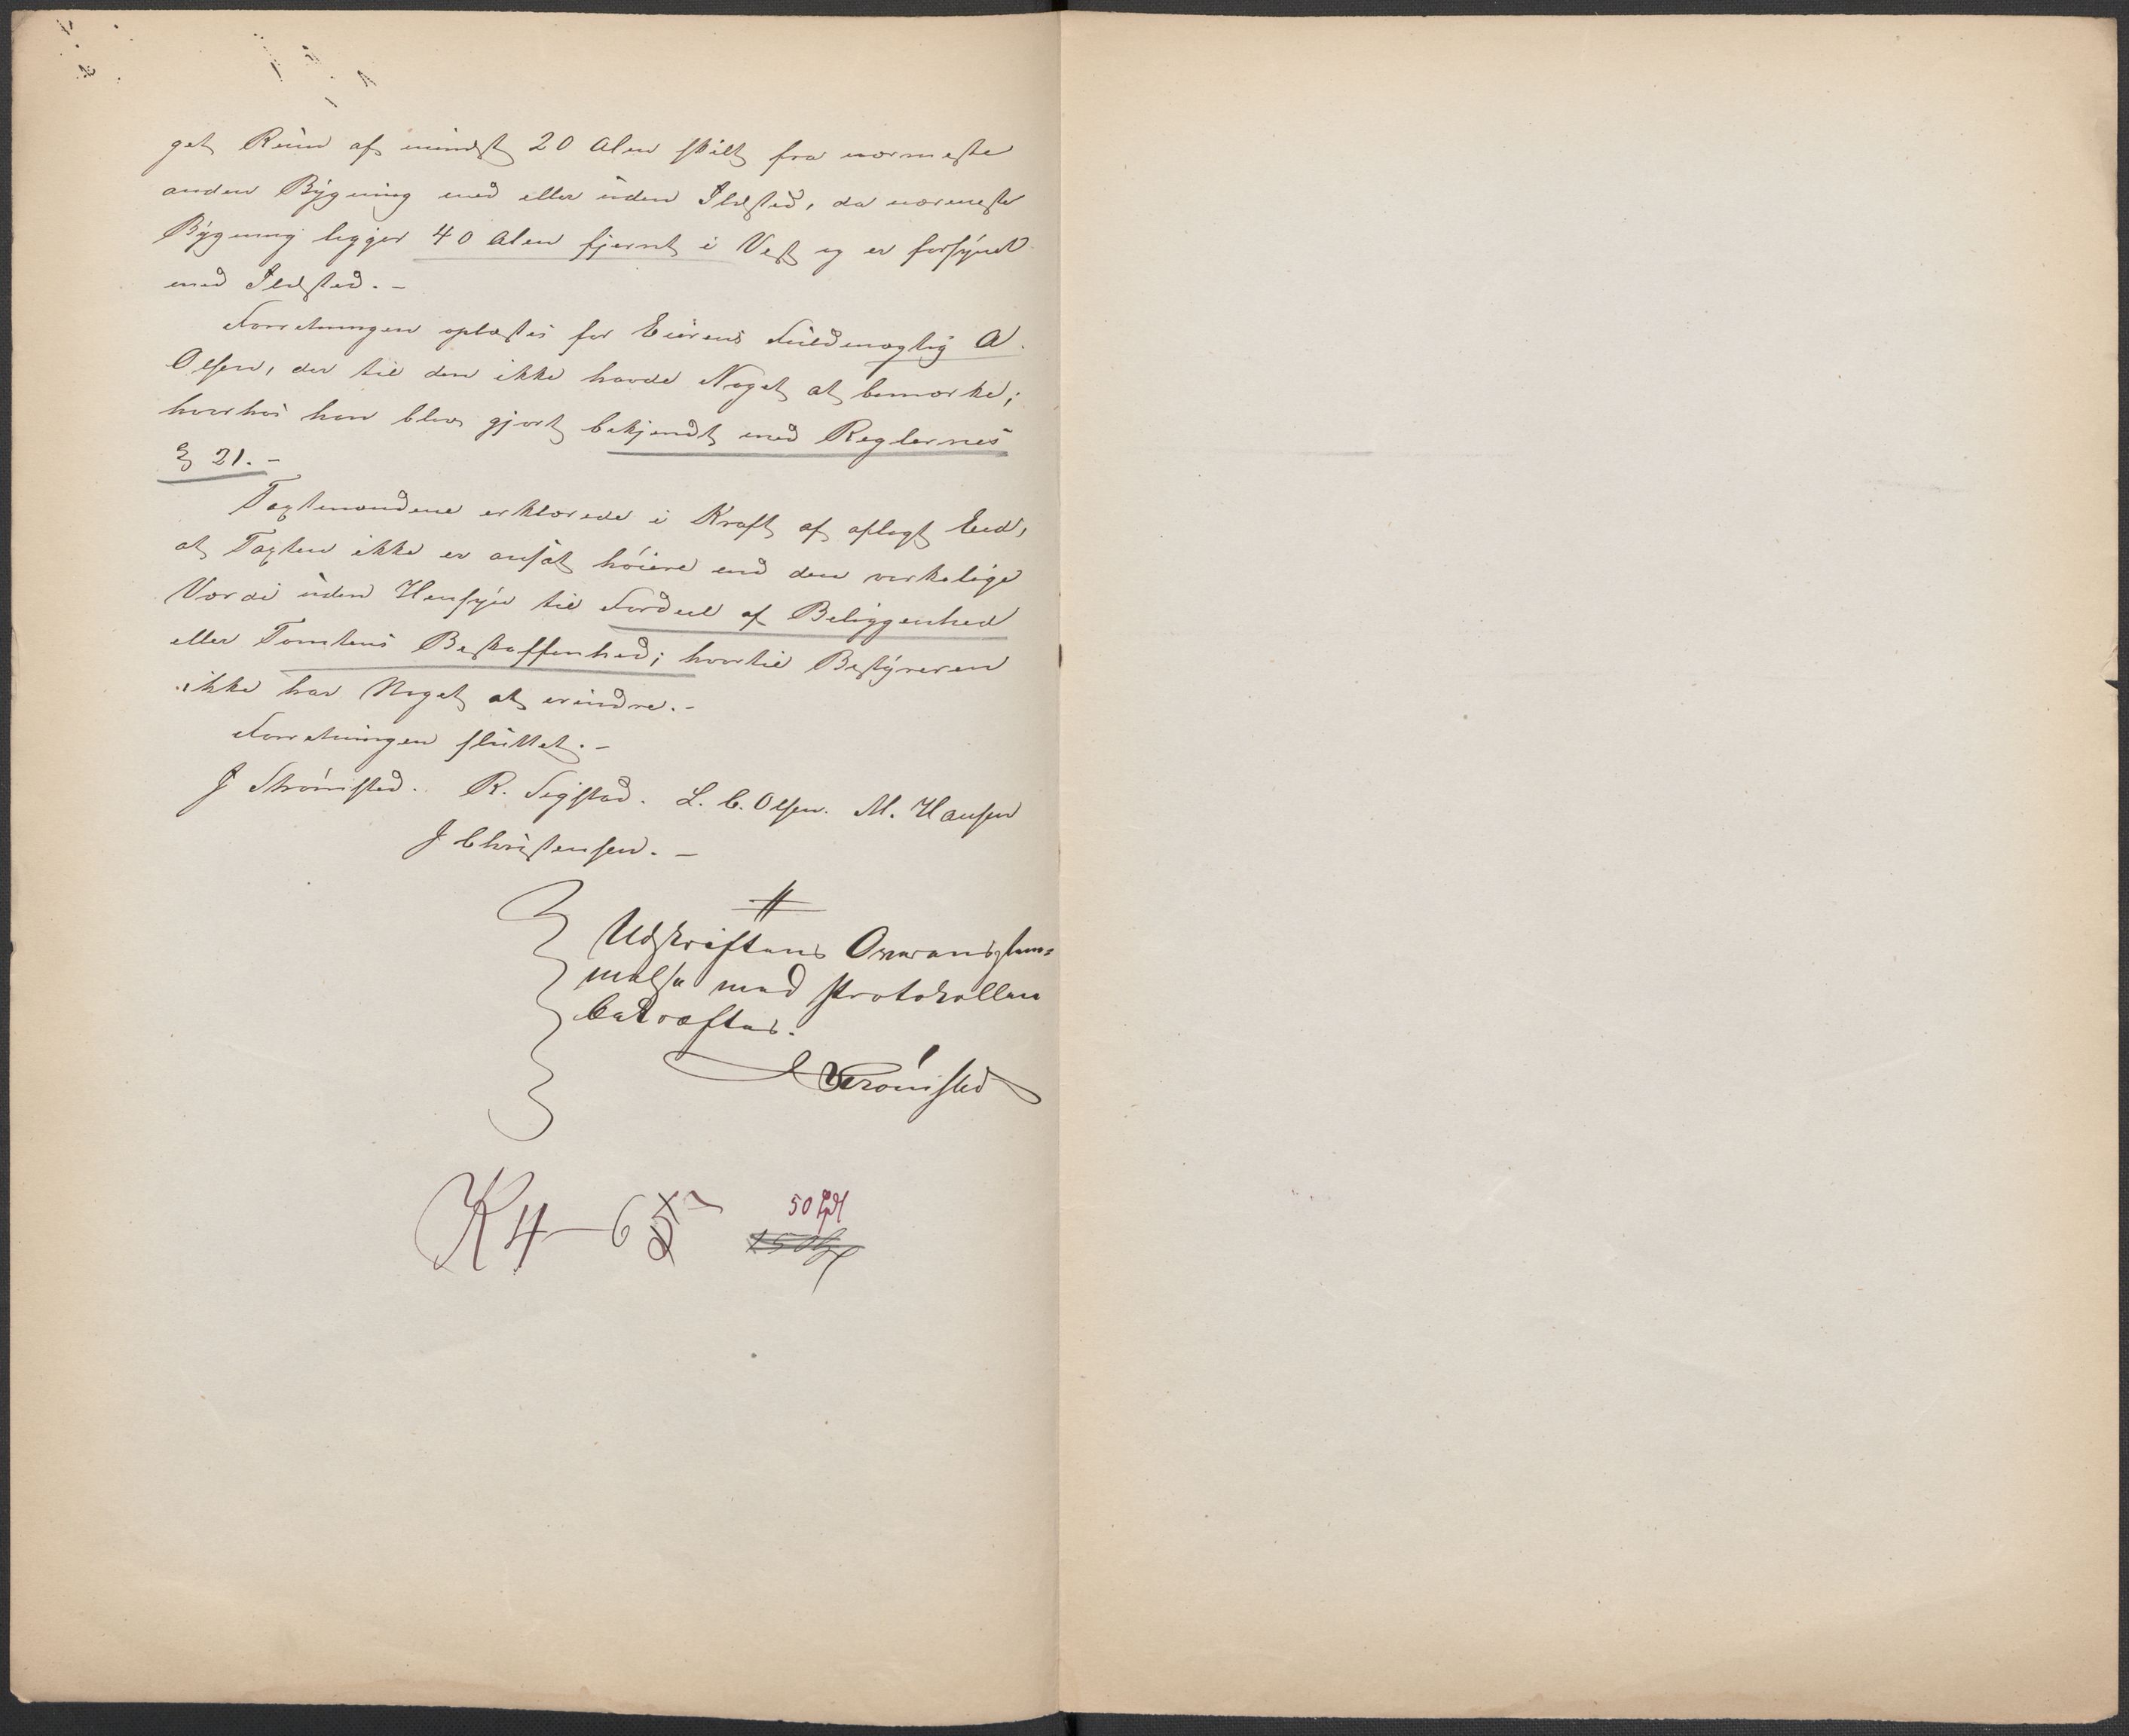 get Rum af mindst 20 Alen skilt fra nærmeste
anden Bygning med eller uden Ildsted, da nærmeste
Bygning ligger 40 Alen fjernt i Vest og er forsynet
med Ildsted. -
Forretningen oplæstes for Eierens Fuldmægtig A.
Olsen, der til den ikke havde Noget at bemærke;
hvorhos han blev gjort bekjendt med Reglernes
§ 21. -
Taxtmændene erklærede i Kraft af aflagt Eed,
at Taxten ikke er ansat høiere end den virkelige
Værdi uden Hensyn til Fordeel af Beliggenhed
eller Tomtens Beskaffenhed; hvortil Bestyreren
ikke har Noget at erindre. -
Forretningen sluttet. -
J Strømsted. R. Sigstad. L. C. Olsen. M. Hansen
J Christensen. -
Udskriftens Overensstem=
melse med Protokollen
bekræftes.
Strømsted
K 4 - 6
50